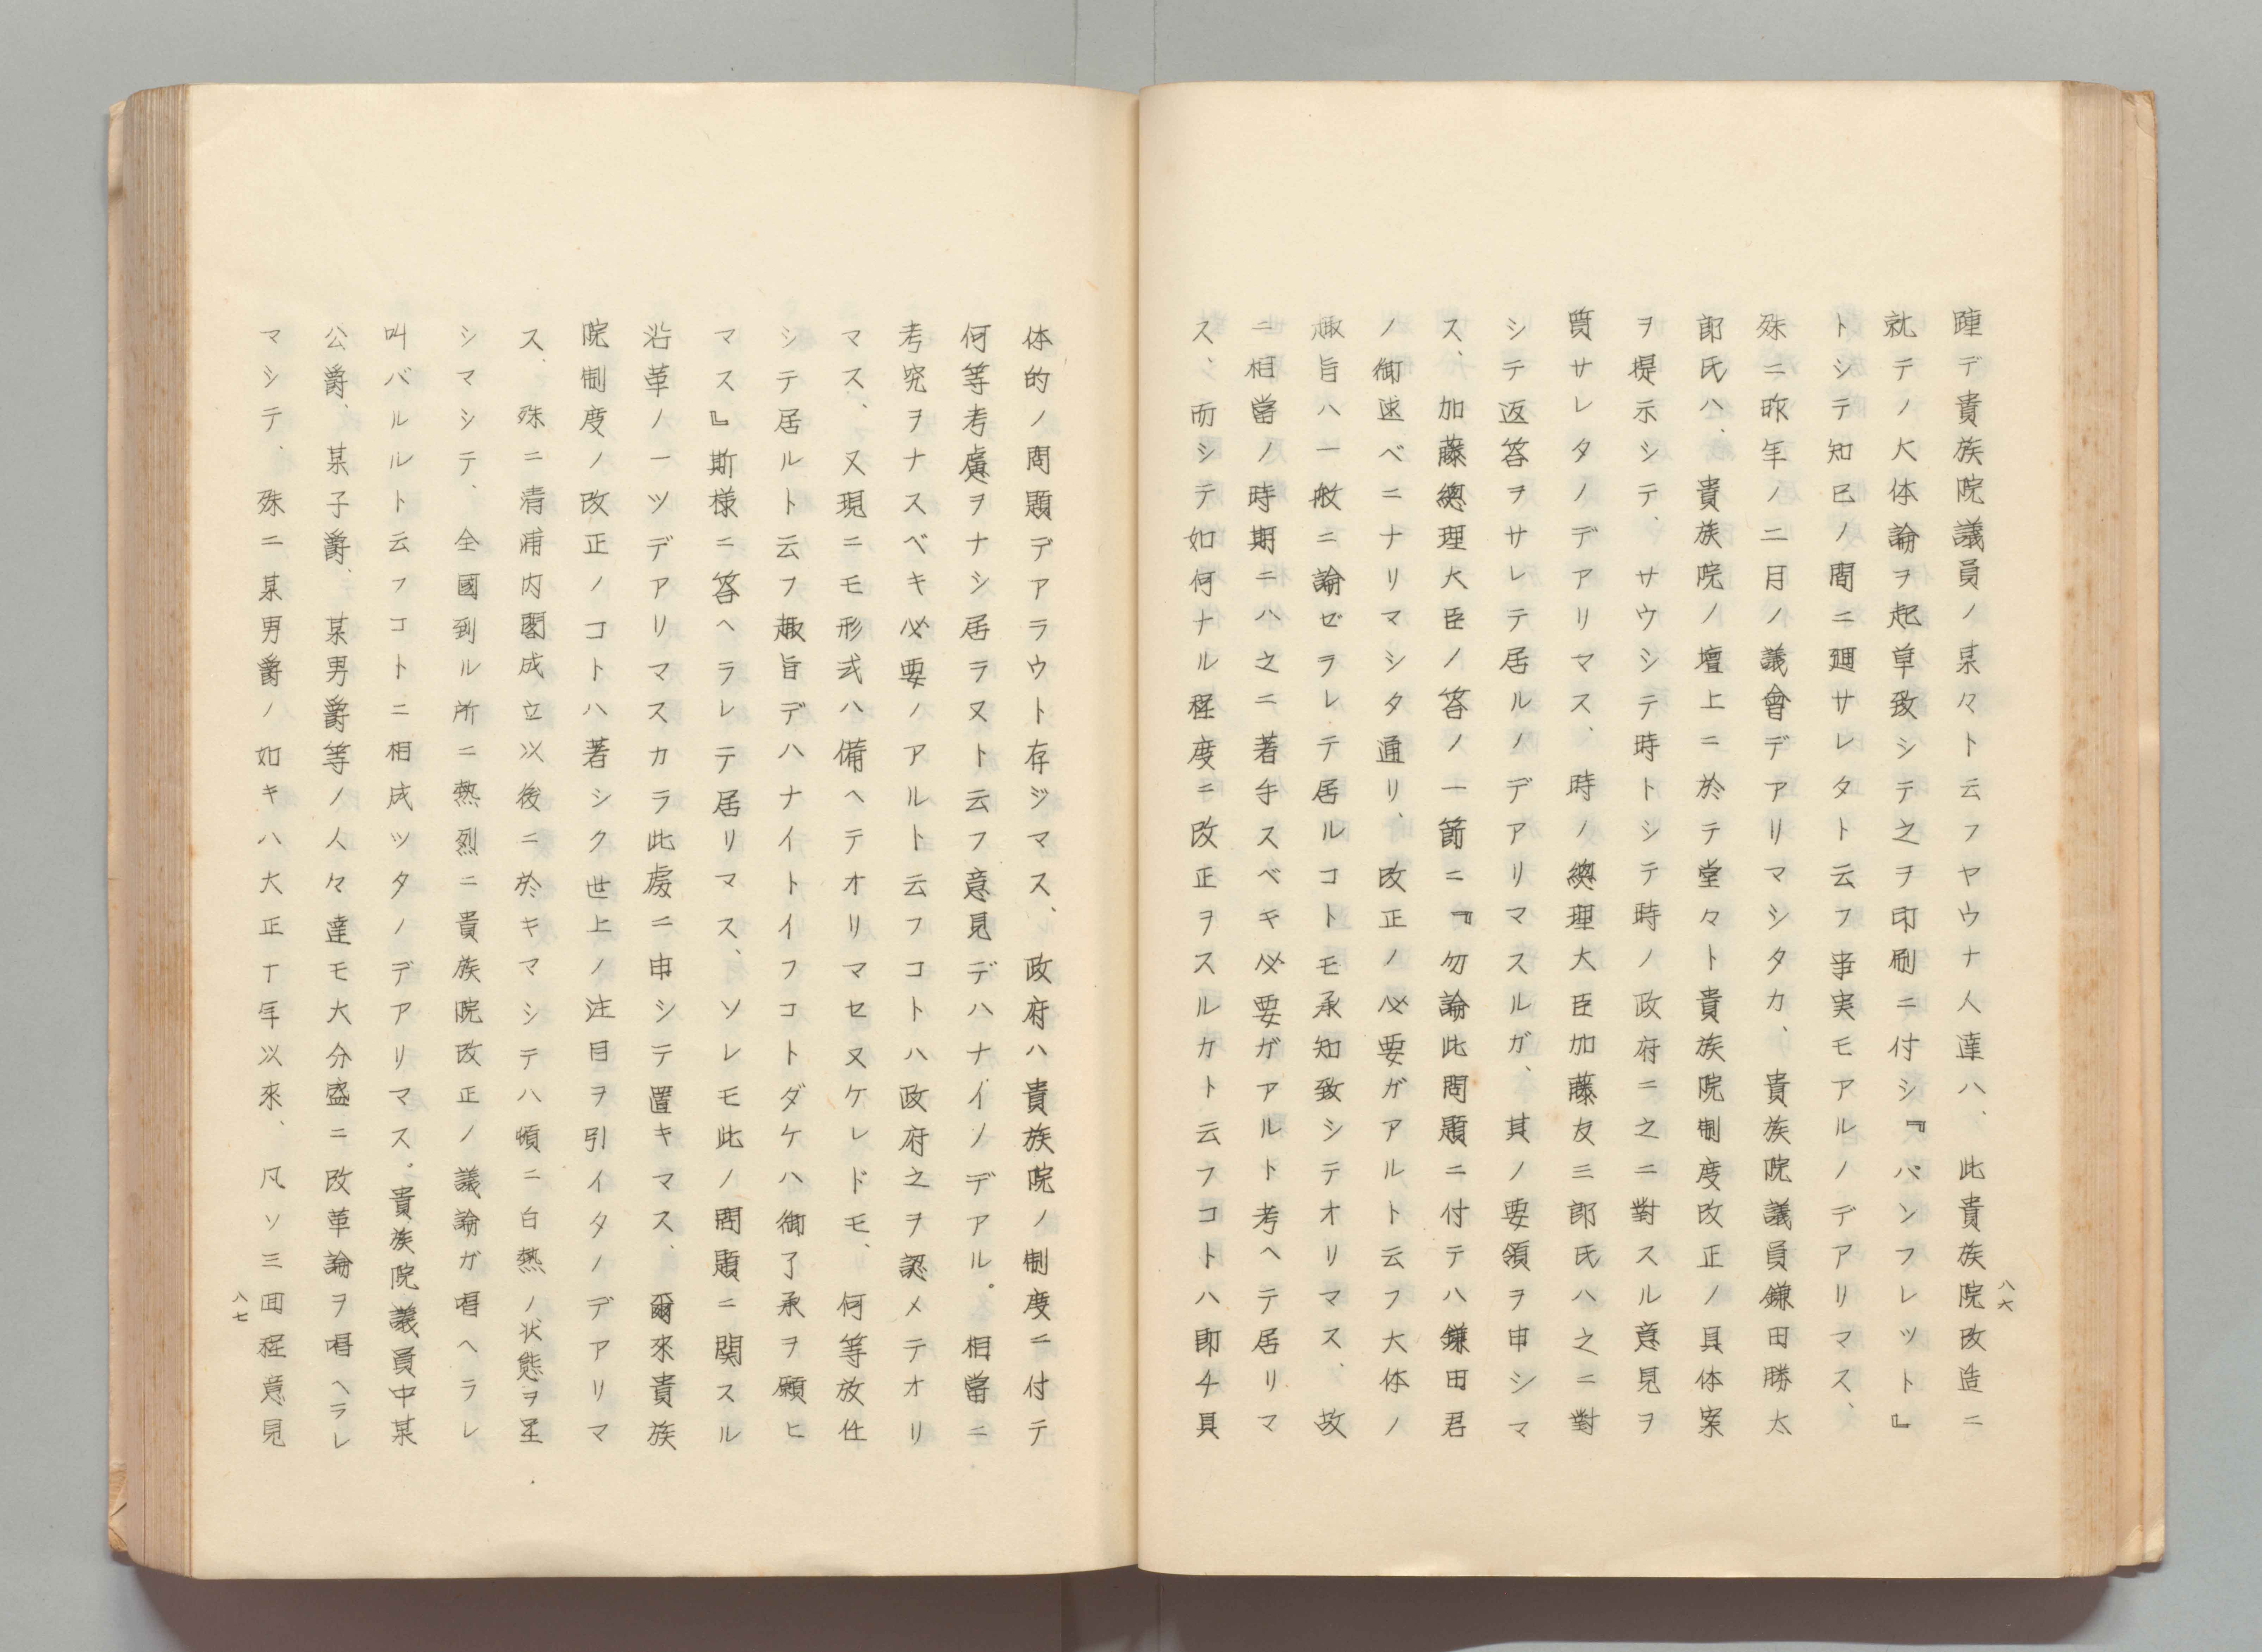 八六
踵デ貴族院議員ノ某々ト云フヤウナ人達ハ、此貴族院改造ニ
就テノ大体論ヲ起草致シテ之ヲ印刷ニ付シ『パンフレット』
トシテ知已ノ間ニ廻サレタト云フ事実モアルノデアリマス、
殊ニ昨年ノ二月ノ議會デアリマシタカ、貴族院議員鎌田勝太
郎氏ハ、貴族院ノ壇上ニ於テ堂々ト貴族院制度改正ノ具体案
ヲ提示シテ、サウシテ時トシテ時ノ政府ニ之ニ對スル意見ヲ
質サレタノデアリマス、時ノ總理大臣加藤友三郎氏ハ之ニ對
シテ返答ヲサレテ居ルノデアリマスルガ、其ノ要領ヲ申シマ
ス、加藤總理大臣ノ答ノ一節ニ『勿論此問題ニ付テハ鎌田君
ノ御述べニナリマシタ通リ、改正ノ必要ガアルト云フ大体ノ
趣旨ハ一般ニ論ゼラレテ居ルコトモ承知致シテオリマス、故
ニ相當ノ時期ニハ之ニ著手スベキ必要ガアルト考ヘテ居リマ
ス、而シテ如何ナル程度ニ改正ヲスルカト云フコトハ即チ具
体的ノ問題デアラウト存ジマス、政府ハ貴族院ノ制度ニ付テ
何等考慮ヲナシ居ラヌト云フ意見デハナイノデアル。相當ニ
考究ヲナスベキ必要ノアルト云フコトハ政府之ヲ認メテオリ
マス、又現ニモ形式ハ備ヘテオリマセヌケレドモ、何等放任
シテ居ルト云フ趣旨デハナイトイフコトダケハ御了承ヲ願ヒ
マス』斯様ニ答ヘラレテ居リマス、ソレモ此ノ問題ニ関スル
沿革ノ一ツデアリマスカラ此處ニ申シテ置キマス、爾來貴族
院制度ノ改正ノコトハ著シク世上ノ注目ヲ引イタノデアリマ
ス、殊ニ清浦内閣成立以後ニ於キマシテハ頓ニ白熱ノ状態ヲ呈
シマシテ、全國到ル所ニ熱烈ニ貴族院改正ノ議論ガ唱ヘラレ
叫バルルト云フコトニ相成ツタノデアリマス。貴族院議員中某
公爵、某子爵、某男爵等ノ人々達モ大分盛ニ改革論ヲ唱ヘラレ
マシテ、殊ニ某男爵ノ如キハ大正十年以來、凡ソ三回程意見
八七